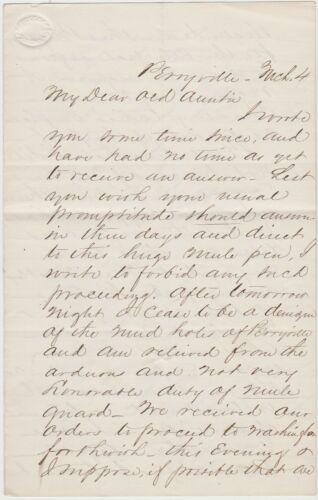 Perryville - Mch. 4
My Dear Old Auntie
I wrote
you some time since, and
have had no time as yet
to receive an answer - Lest
you with your usual
promptitude should answer
in three days and direct
to this huge mule pen, I
write to forbid any such
proceeding. After tomorrow
night I cease to be a denizen
of the mud holes of Perryville
and am relieved from the
arduous and not very
honorable duty of mule
guard - We received our
orders to proceed to Washington
forthwith - this evening &
I suppose, if possible that we